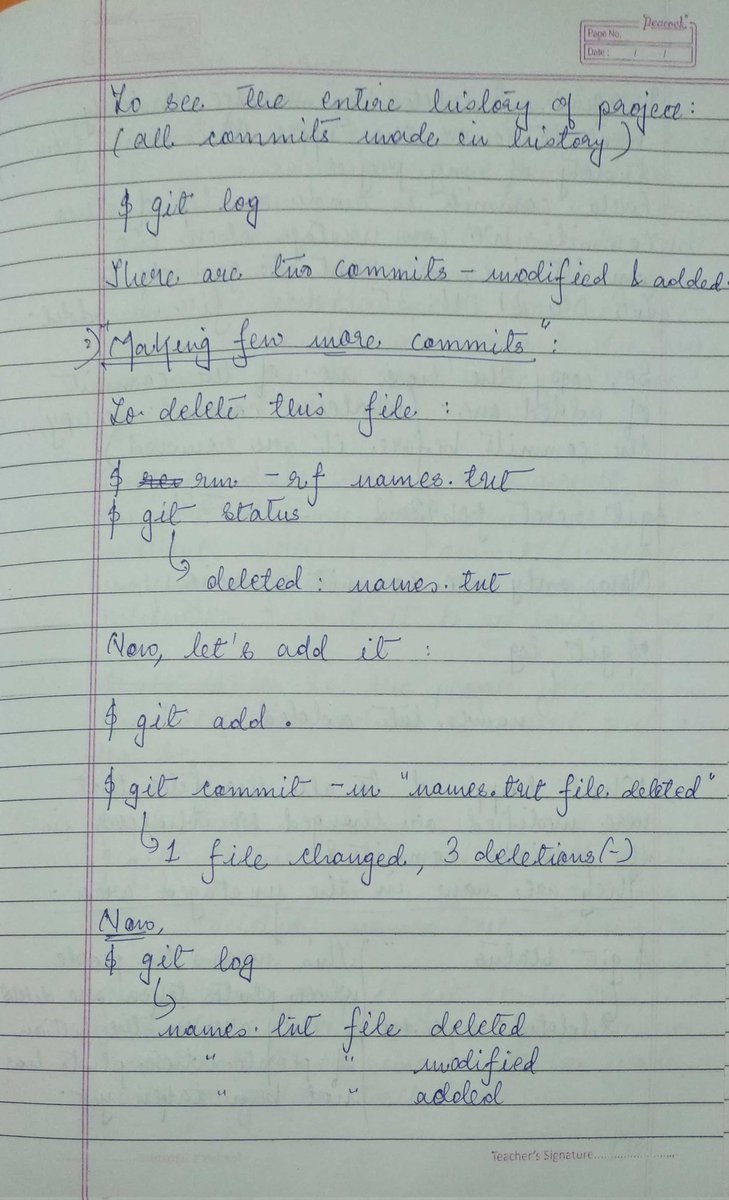 Peacock
Page No.
Date : / /
To see the entire history of project :
(all commits made in history)
$ git log
There are two commits - modified & added.
⇒) "Making few more commits" :
To delete this file :
$ rm -rf names.txt
$ git status
↳ deleted : names.txt
Now, let's add it :
$ git add .
$ git commit -m "names.txt file deleted"
↳ 1 file changed, 3 deletions(-)
Now,
$ git log
↳
names.txt file deleted
" " modified
" " added
Teacher's Signature....................